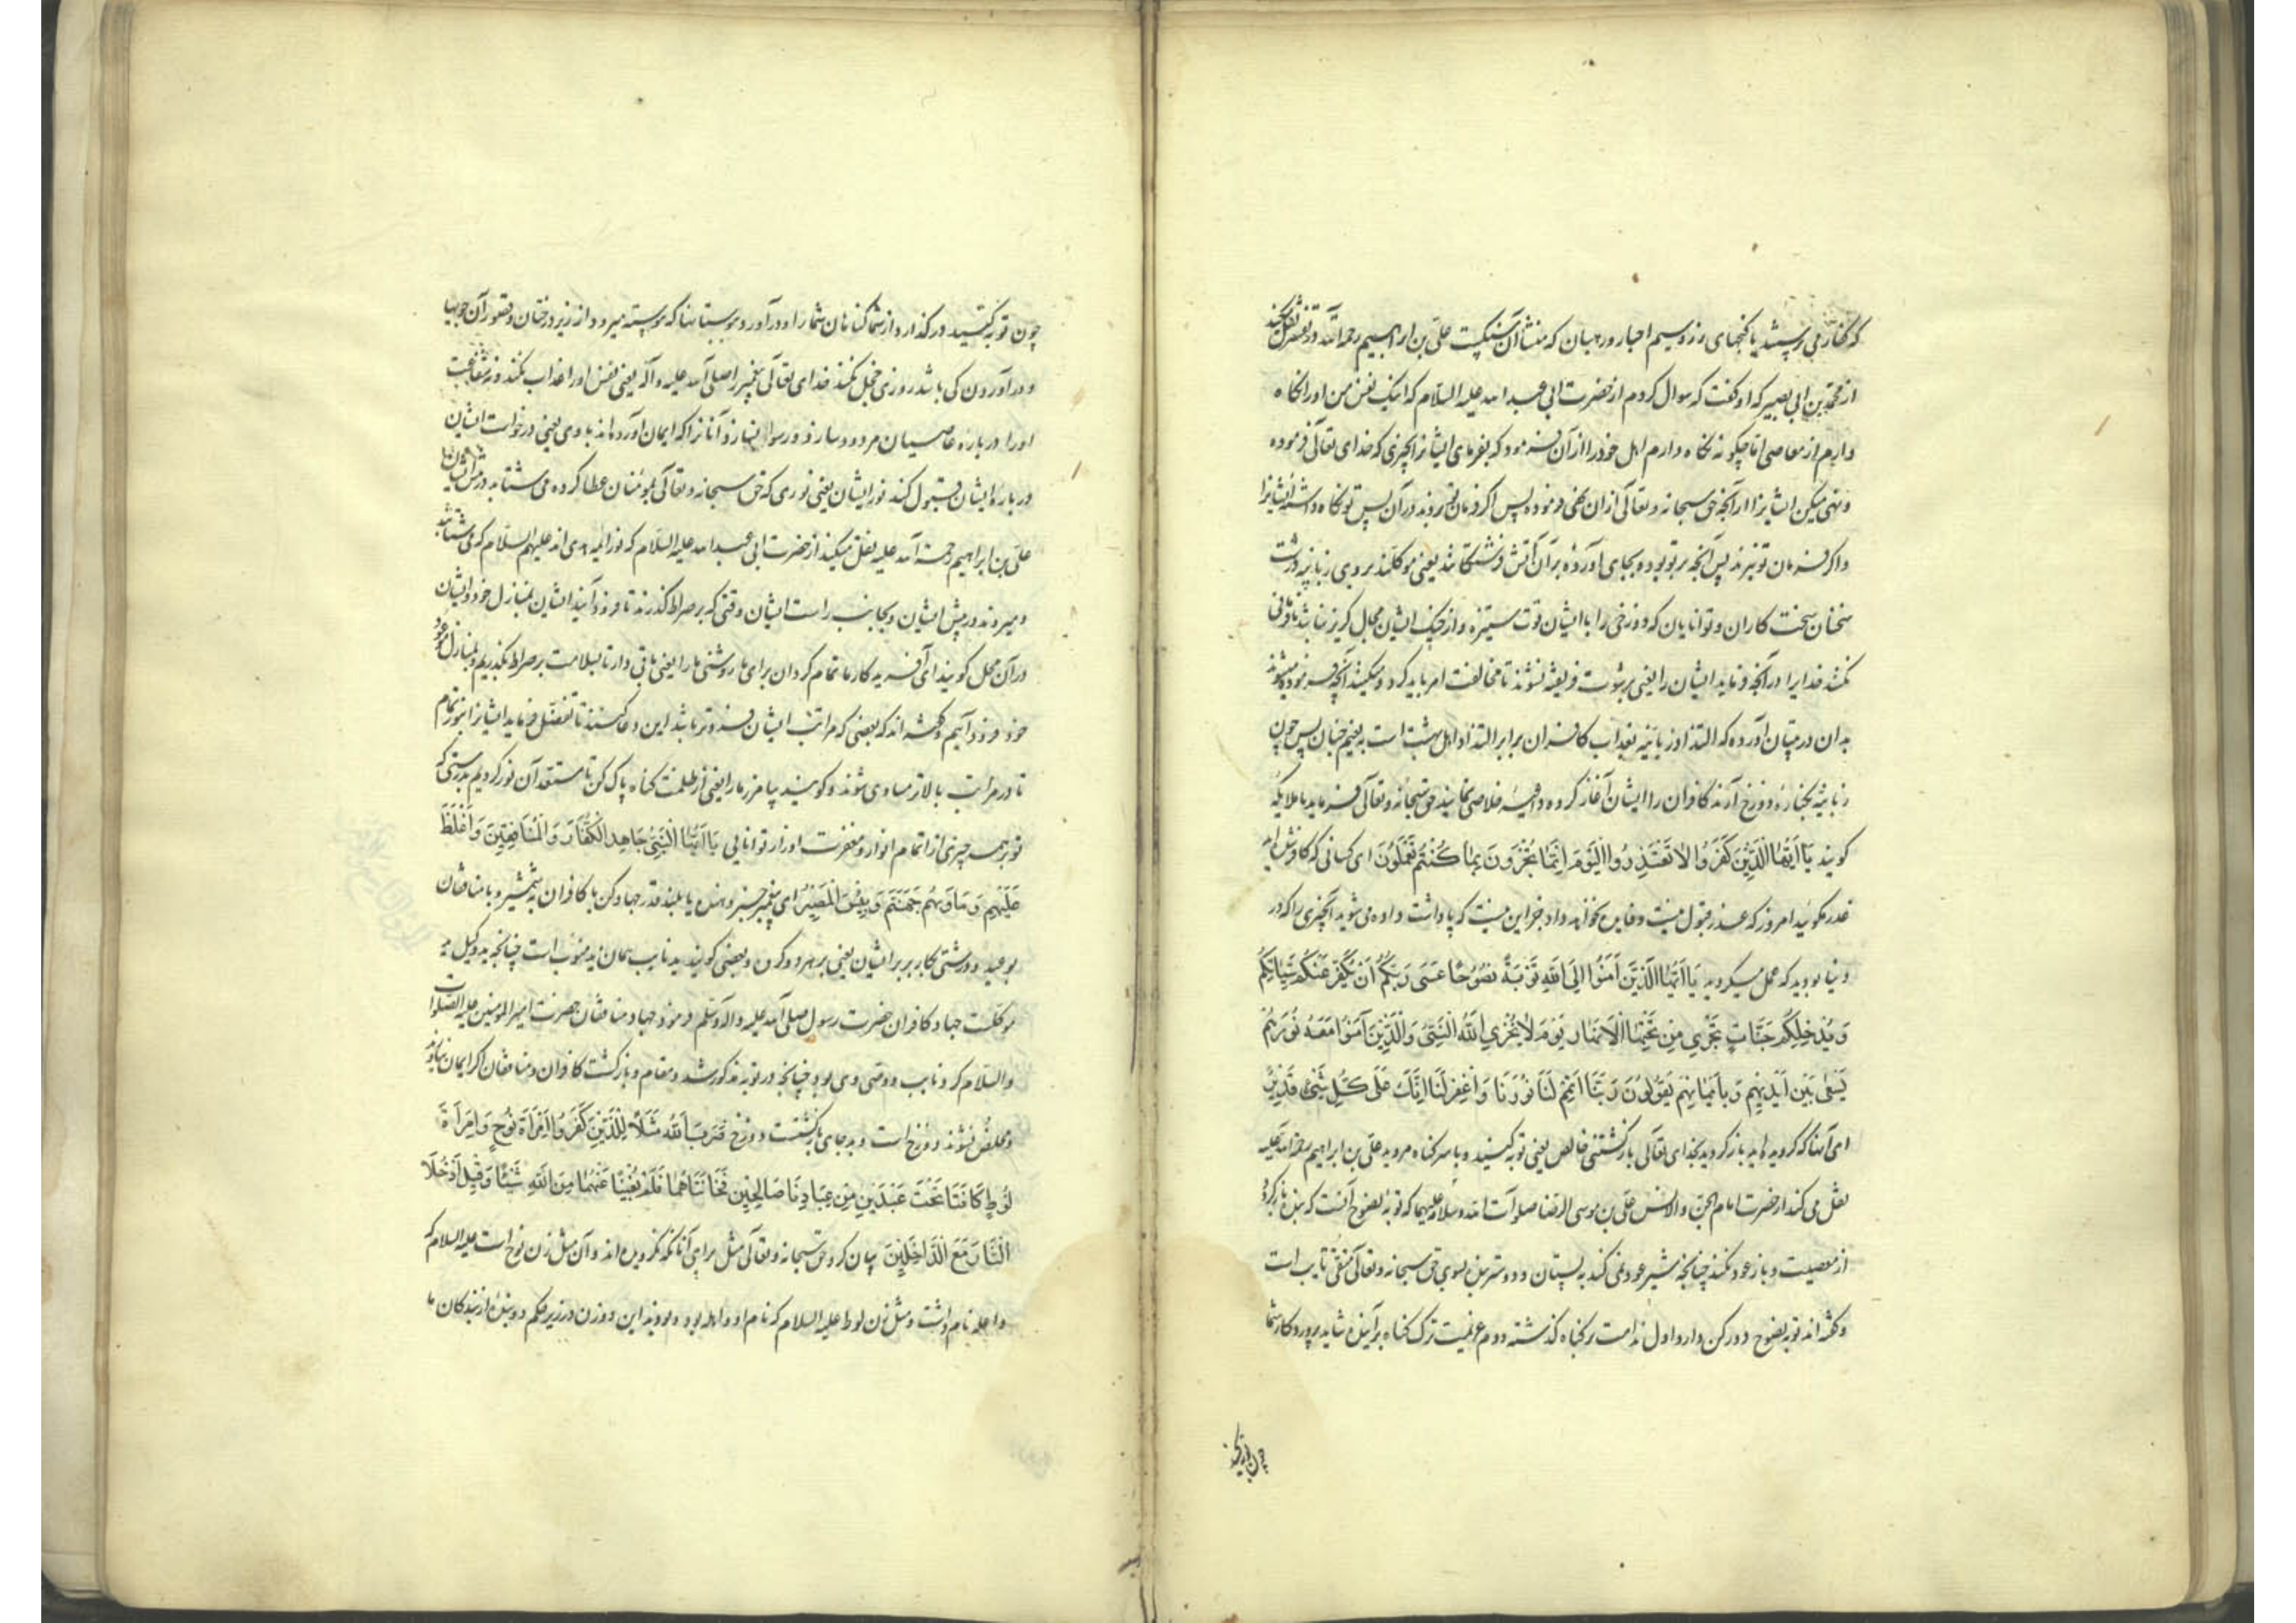 که کفار می پرستیدند یا گنجهای زر و سیم احبار و رهبان که منشأ آن سنگیست علی بن ابراهیم رحمه الله در تفسیرش نقل میکند
از محمد بن ابی بصیر که او گفت که سوال کردم از حضرت ابی عبد الله علیه السلام که اینک نفس من او را نگاه
دارم از معاصی اما چگونه نگاه دارم اهل خود را از آن فرمود که بفرمای ایشانرا بچیزی که خدای تعالی فرموده
و نهی میکن ایشانرا از آنچه حق سبحانه و تعالی از ان نهی فرموده پس اگر فرمان تو بردند در آن پس تو نگاه داشته ایشانرا
و اگر فرمان تو نبرند پس آنچه بر تو بوده بجای آوردهٔ بر آن آتش فرشتگانند یعنی موکلند بر وی زبانیه درشت
سخنان سخت کاران و توانایان که دوزخی را با ایشان قوت ستیزه و از چنگ ایشان مجال گریز نباشد نافرمانی
نکنند خدایرا در آنچه فرماید ایشان را یعنی برشوت فریفته نشوند تا مخالفت امر باید کرد و میکنند آنچه فرموده میشوند
بدان در تبیان آورده که التذاذ زبانیه بعذاب کافران برابر التذاذ اهل بهشت است به نعیم جنان پس چون
زبانیه بکنارهٔ دوزخ آرند کافران را ایشان آغاز کرده داعیهٔ خلاصی نمایند حق سبحانه و تعالی فرماید یا ملایکه
گویند یَا أَیُّهَا الَّذِینَ کَفَرُوا لَا تَعْتَذِرُوا الْیَوْمَ إِنَّمَا تُجْزَوْنَ مَا کُنْتُمْ تَعْمَلُونَ ای کسانی که کافر شده اید
عذر مگوئید امروز که عذر قبول نیست و فایده نخواهد داد جز این نیست که پاداشت داده می شوید آنچیزی را که در
دنیا بودید که عمل میکردید یَا أَیُّهَا الَّذِینَ آمَنُوا إِلَی اللَّهِ تَوْبَةً نَصُوحًا عَسَی رَبُّکُمْ أَنْ یُکَفِّرَ عَنْکُمْ سَیِّئَاتِکُمْ
وَیُدْخِلَکُمْ جَنَّاتٍ تَجْرِی مِنْ تَحْتِهَا الْأَنْهَارُ یَوْمَ لَا یُخْزِی اللَّهُ النَّبِیَّ وَالَّذِینَ آمَنُوا مَعَهُ نُورُهُمْ
یَسْعَی بَیْنَ أَیْدِیهِمْ وَبِأَیْمَانِهِمْ یَقُولُونَ رَبَّنَا أَتْمِمْ لَنَا نُورَنَا وَاغْفِرْ لَنَا إِنَّکَ عَلَی کُلِّ شَیْءٍ قَدِیرٌ
ای آنها که گرویده اید باز گردید بخدای تعالی بازگشتنی خالص یعنی توبه کنید و باسر گناه مروید علی بن ابراهیم رحمة الله علیه
نقل می کند از حضرت امام الجن والانس علی بن موسی الرضا صلوات الله وسلامه علیهما که توبهٔ نصوح آنست که بنده بازگردد
از معصیت و باز عود نکند چنانچه شیر عود نمی کند به پستان و دوسترین بنده بسوی حق سبحانه و تعالی متقی تایب است
و گفته اند توبه نصوح دو رکن دارد اول ندامت بر گناه گذشته دوم عزیمت ترک گناه بر آینده شاید پروردگار شما
چون توبه کنید
چون توبه کنید درگذارد از شما گناهان شما را و درآورد ببوستانها که پیوسته میرود از زیر درختان و قصور آن جویها
و درآوردن کی باشد روزی خجل نکند خدای تعالی پیغمبر را صلی الله علیه و آله یعنی نفس او را عذاب نکند و نه شفاعت
او را در بارهٔ عاصیان مردود سازد و رسوا نسازد آنانرا که ایمان آورده اند با وی یعنی درخواست ایشان
در بارهٔ ایشان قبول کند نور ایشان یعنی نوری که حق سبحانه و تعالی بمؤمنان عطا کرده می شتابد در پیش ایشان
علی بن ابراهیم رحمة الله علیه نقل میکند از حضرت ابی عبد الله علیه السلام که نور ائمهٔ هدی اند علیهم السلام که می شتابند
و میروند در پیش ایشان و بجانب راست ایشان وقتی که بر صراط گذرند تا فرود آیند ایشان بمنازل خود و ایشان
در آن محل گویند ای آفریدگار ما تمام گردان برای ما روشنی ما را یعنی باقی دار تا بسلامت بر صراط بگذریم و بمنازل موعود
خود فرود آییم و گفته اند که بعضی که مراتب ایشان فروتر باشد این دعا کنند تا تفضل فرماید ایشانرا بنور تمام
تا در مراتب بالاتر مساوی شوند و گویند بیامرز ما را یعنی از ظلمت گناه پاک کن تا مستعد آن نور گردیم بدرستی که
تو بر همه چیزی از اتمام انوار و مغفرت اوزار توانایی یَا أَیُّهَا النَّبِیُّ جَاهِدِ الْکُفَّارَ وَالْمُنَافِقِینَ وَاغْلُظْ
عَلَیْهِمْ وَمَأْوَاهُمْ جَهَنَّمُ وَبِئْسَ الْمَصِیرُ ای پیغمبر خبر دهنده یا بلند قدر جهاد کن با کافران به شمشیر و با منافقان
بوعید و درشتی کار بر بر ایشان یعنی بر هر دو گروه و بعضی گویند ید نایب همان ید منوب است چنانچه ید وکیل ید
موکلست جهاد کافران حضرت رسول صلی الله علیه و اله وسلم فرمود و جهاد منافقان حضرت امیر المومنین علیه الصلوات
والسلام کرد و نایب و وصی وی بود چنانچه در توبه مذکور شد و مقام و بازگشت کافران و منافقان اگر ایمان نیاورند
و مخلص نشوند دوزخ است و بد جای بازگشتست دوزخ ضَرَبَ اللَّهُ مَثَلًا لِلَّذِینَ کَفَرُوا امْرَأَةَ نُوحٍ وَامْرَأَةَ
لُوطٍ کَانَتَا تَحْتَ عَبْدَیْنِ مِنْ عِبَادِنَا صَالِحَیْنِ فَخَانَتَاهُمَا فَلَمْ یُغْنِیَا عَنْهُمَا مِنَ اللَّهِ شَیْئًا وَقِیلَ ادْخُلَا
النَّارَ مَعَ الدَّاخِلِینَ بیان کرد حق سبحانه و تعالی مثل برای آنانکه نگرویده اند و آن مثل زن نوح است علیه السلام که
واعله نام داشت و مثل زن لوط علیه السلام که نام او واهله بود و بودند این دو زن در زیر حکم دو بنده از بندگان ما